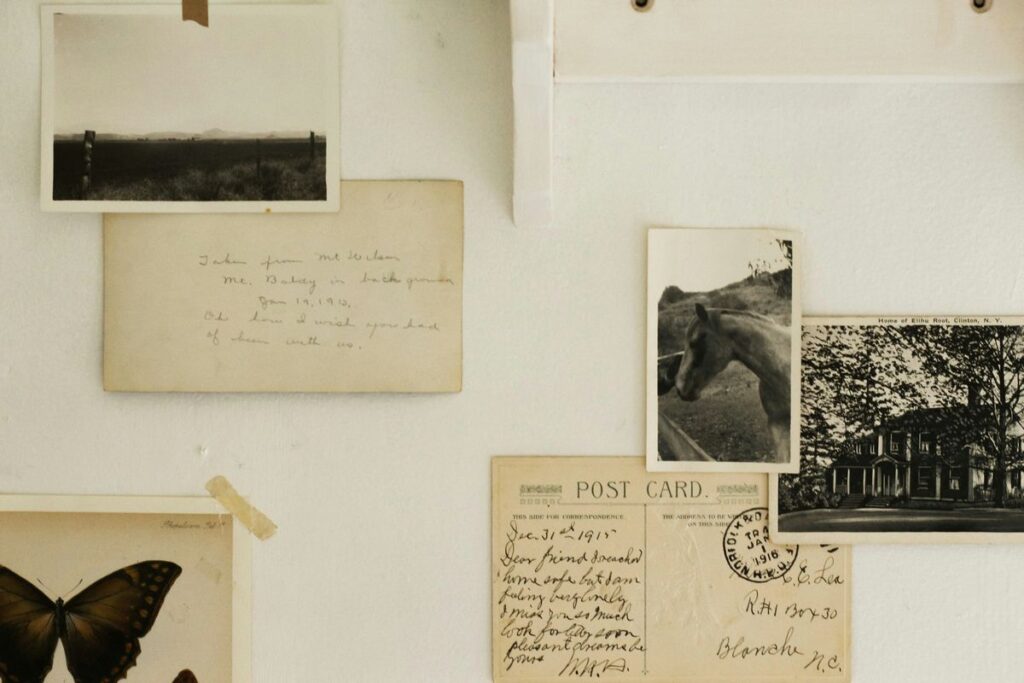 Taken from Mt Wilson
Mt. Baldy in back ground
Jan 19, 1913.
Oh how I wish you had
of been with us.
Home of Elihu Root, Clinton, N. Y.
POST CARD.
THIS SIDE FOR CORRESPONDENCE.
THE ADDRESS TO BE
ON THIS SIDE
Dec. 31st 1915
Dear friend I reached
home safe but I am
feling very lonely
I miss you so much
look for letter soon
pleasant dreams be
yours
NORFOLK
JAN
1
1916
C. E. Lea
R#1 Box 30
Blanche N.C.